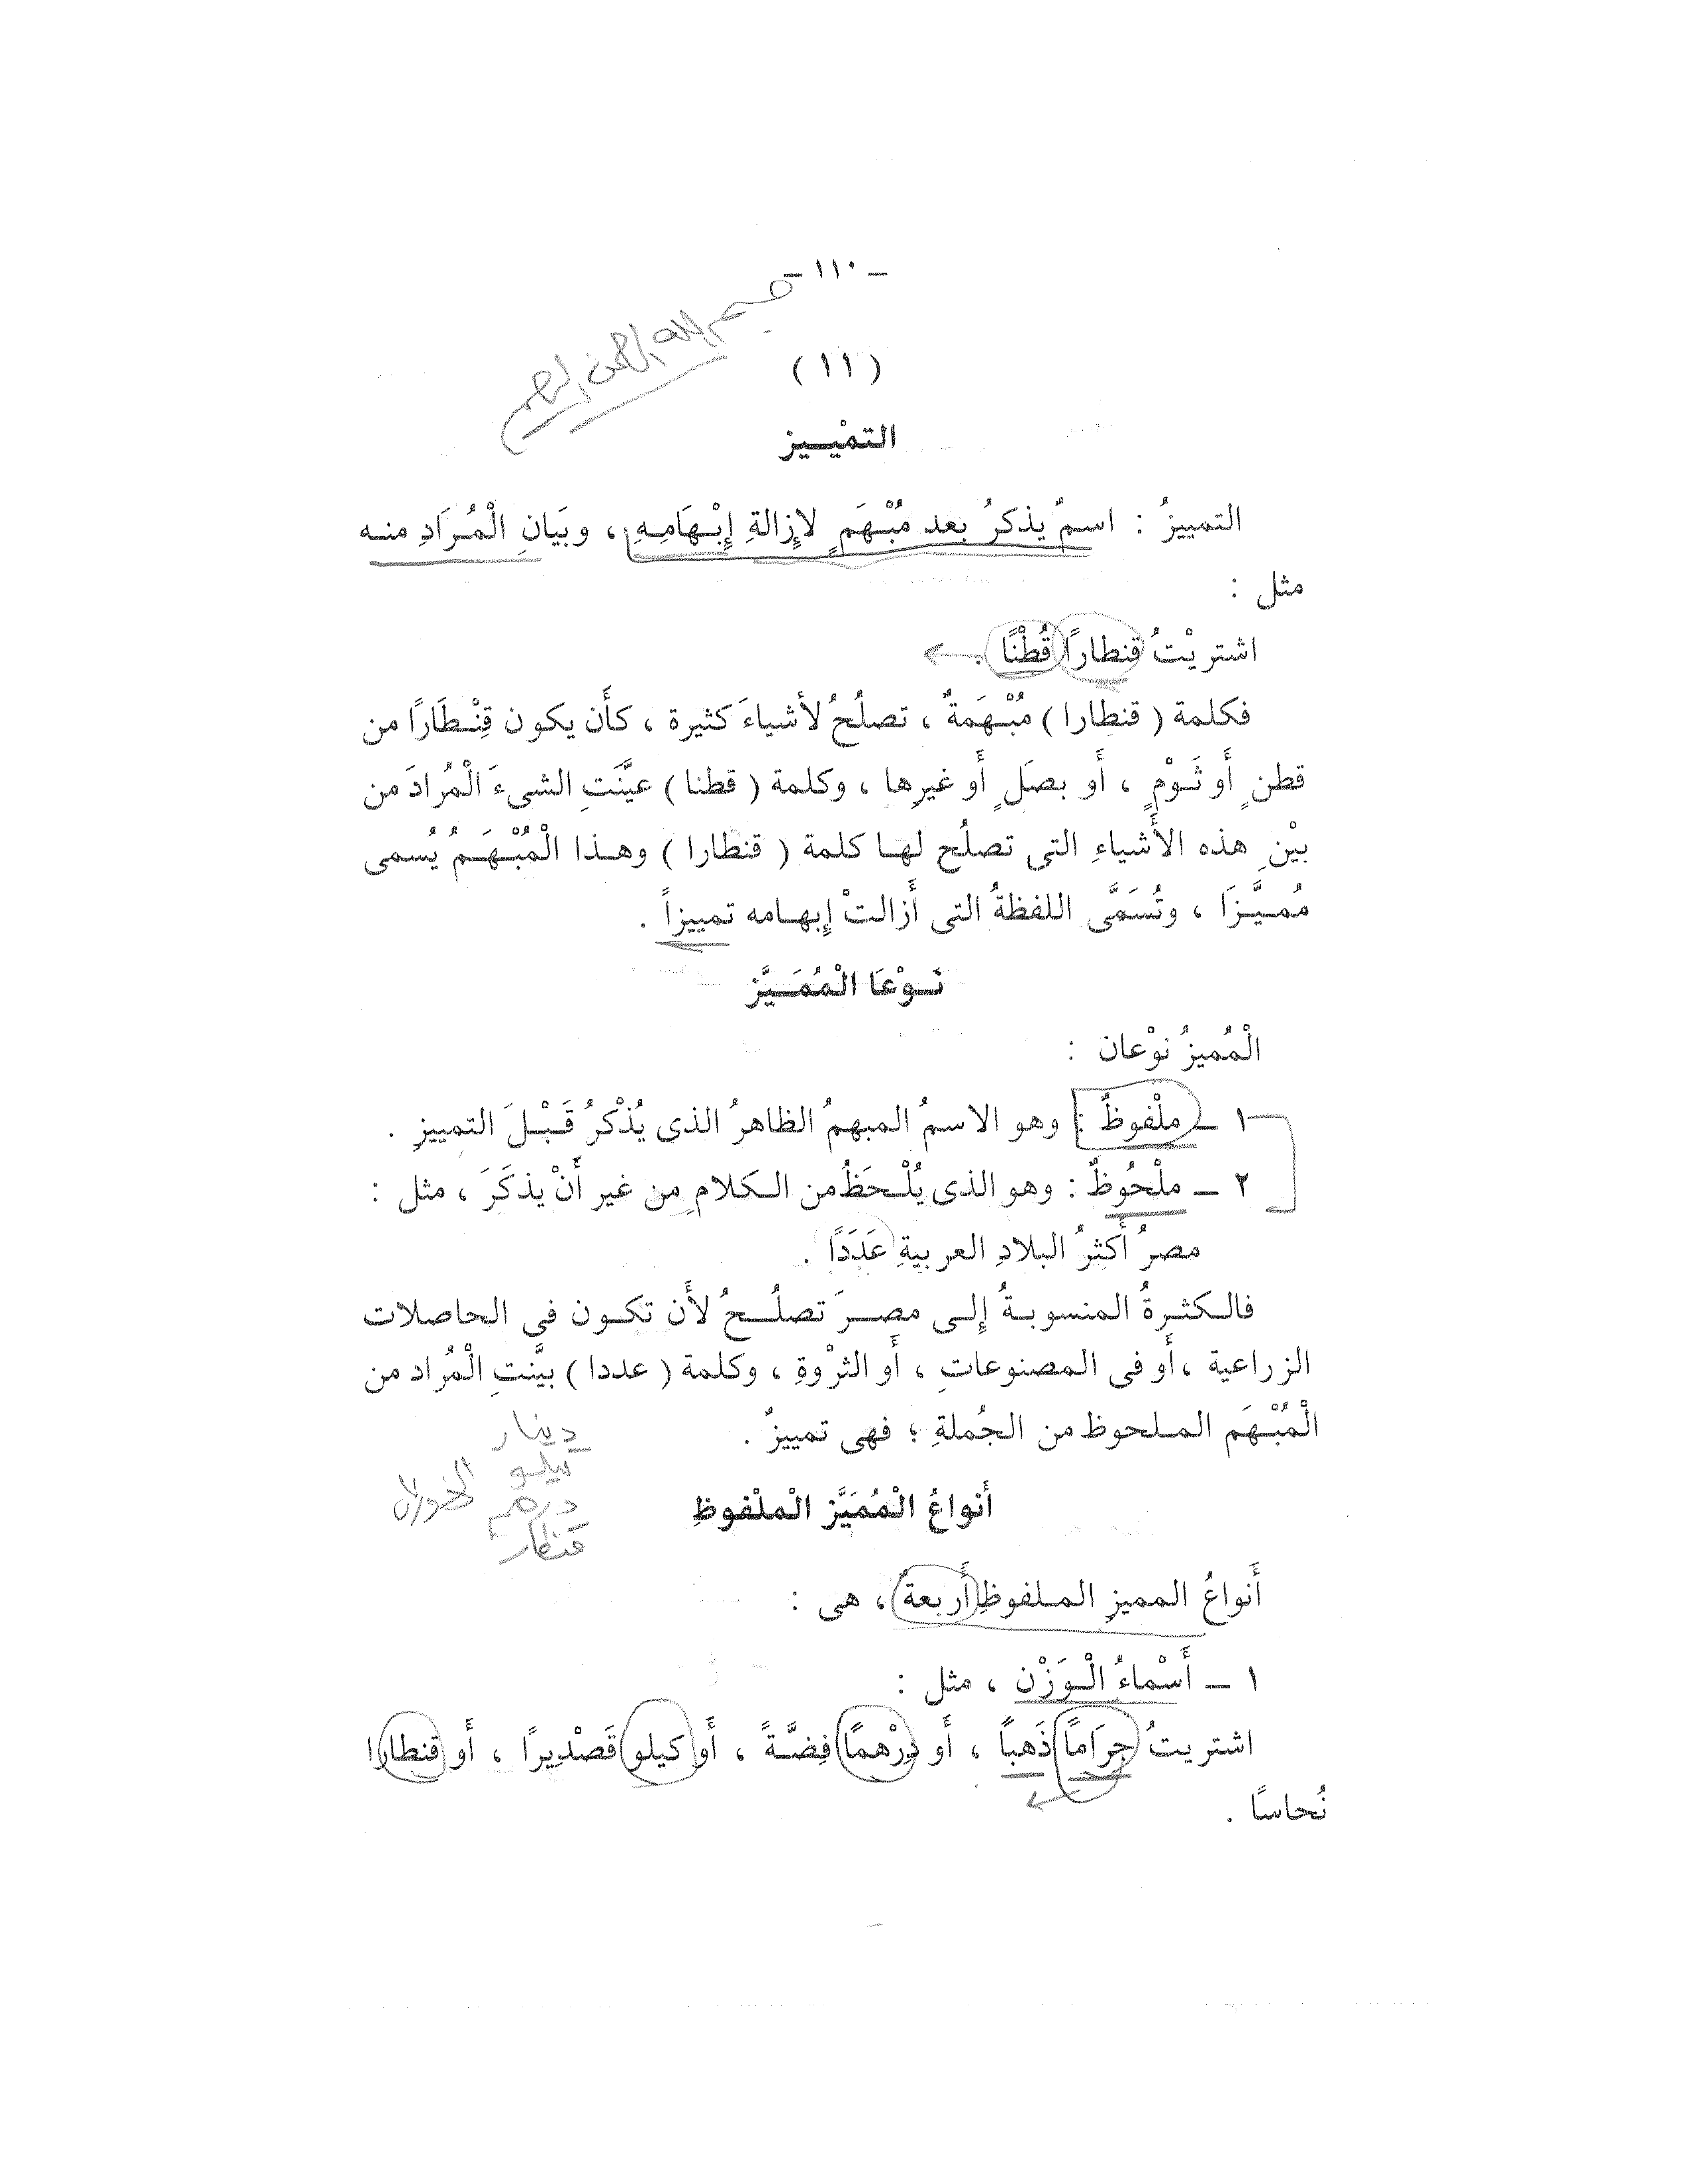 - ١١٠ -
بسم الله الرحمن الرحيم
( ١١ )
التمْيـيز
التمييزُ : اسمٌ يذكرُ بعد مُبْهَمٍ لإِزالةِ إِبْهَامِهِ ، وبَيَانِ الْمُرَادِ منه
مثل :
اشتريْتُ قنطارًا قُطْنًا .
فكلمة ( قنطارا ) مُبْهَمةٌ ، تصلُحُ لأشياءَ كثيرة ، كأَن يكون قِنْطَارًا من
قطنٍ أَو ثَوْمٍ ، أَو بصَلٍ أَو غيرِها ، وكلمة ( قطنا ) عيَّنَتِ الشىءَ الْمُرادَ من
بيْنِ هذه الأَشياءِ التى تصلُح لها كلمة ( قنطارا ) وهذا الْمُبْهَمُ يُسمى
مُميَّزَا ، وتُسَمَّى اللفظةُ التى أَزالتْ إِبهامه تمييزاً .
نَوْعَا الْمُمَيَّز
الْمُميزُ نوْعان :
١ ـ ملْفوظٌ : وهو الاسمُ المبهمُ الظاهرُ الذى يُذْكرُ قَبْلَ التمييزِ .
٢ ـ ملْحُوظٌ : وهو الذى يُلْحَظُ من الكلامِ من غير أَنْ يذكَرَ ، مثل :
مصرُ أَكثرُ البلادِ العربيةِ عَدَدًا .
فالكثرةُ المنسوبةُ إِلى مصرَ تصلُحُ لأَن تكون فى الحاصلات
الزراعية ، أَو فى المصنوعاتِ ، أَو الثرْوةِ ، وكلمة ( عددا ) بيَّنتِ الْمُراد من
الْمُبْهَم الملحوظ من الجُملةِ ؛ فهى تمييزٌ .
دينار
كيلو
درهم
قنطار
أَنواعُ الْمُمَيَّز الْملْفوظِ
أَنواعُ المميزِ الملفوظِ أَربعةٌ ، هى :
١ ـ أَسْماءُ الْوَزْن ، مثل :
اشتريتُ جرَاماً ذَهباً ، أَو دِرْهمًا فِضَّةً ، أَو كيلو قَصْدِيرًا ، أَو قنطارا
نُحاسًا .